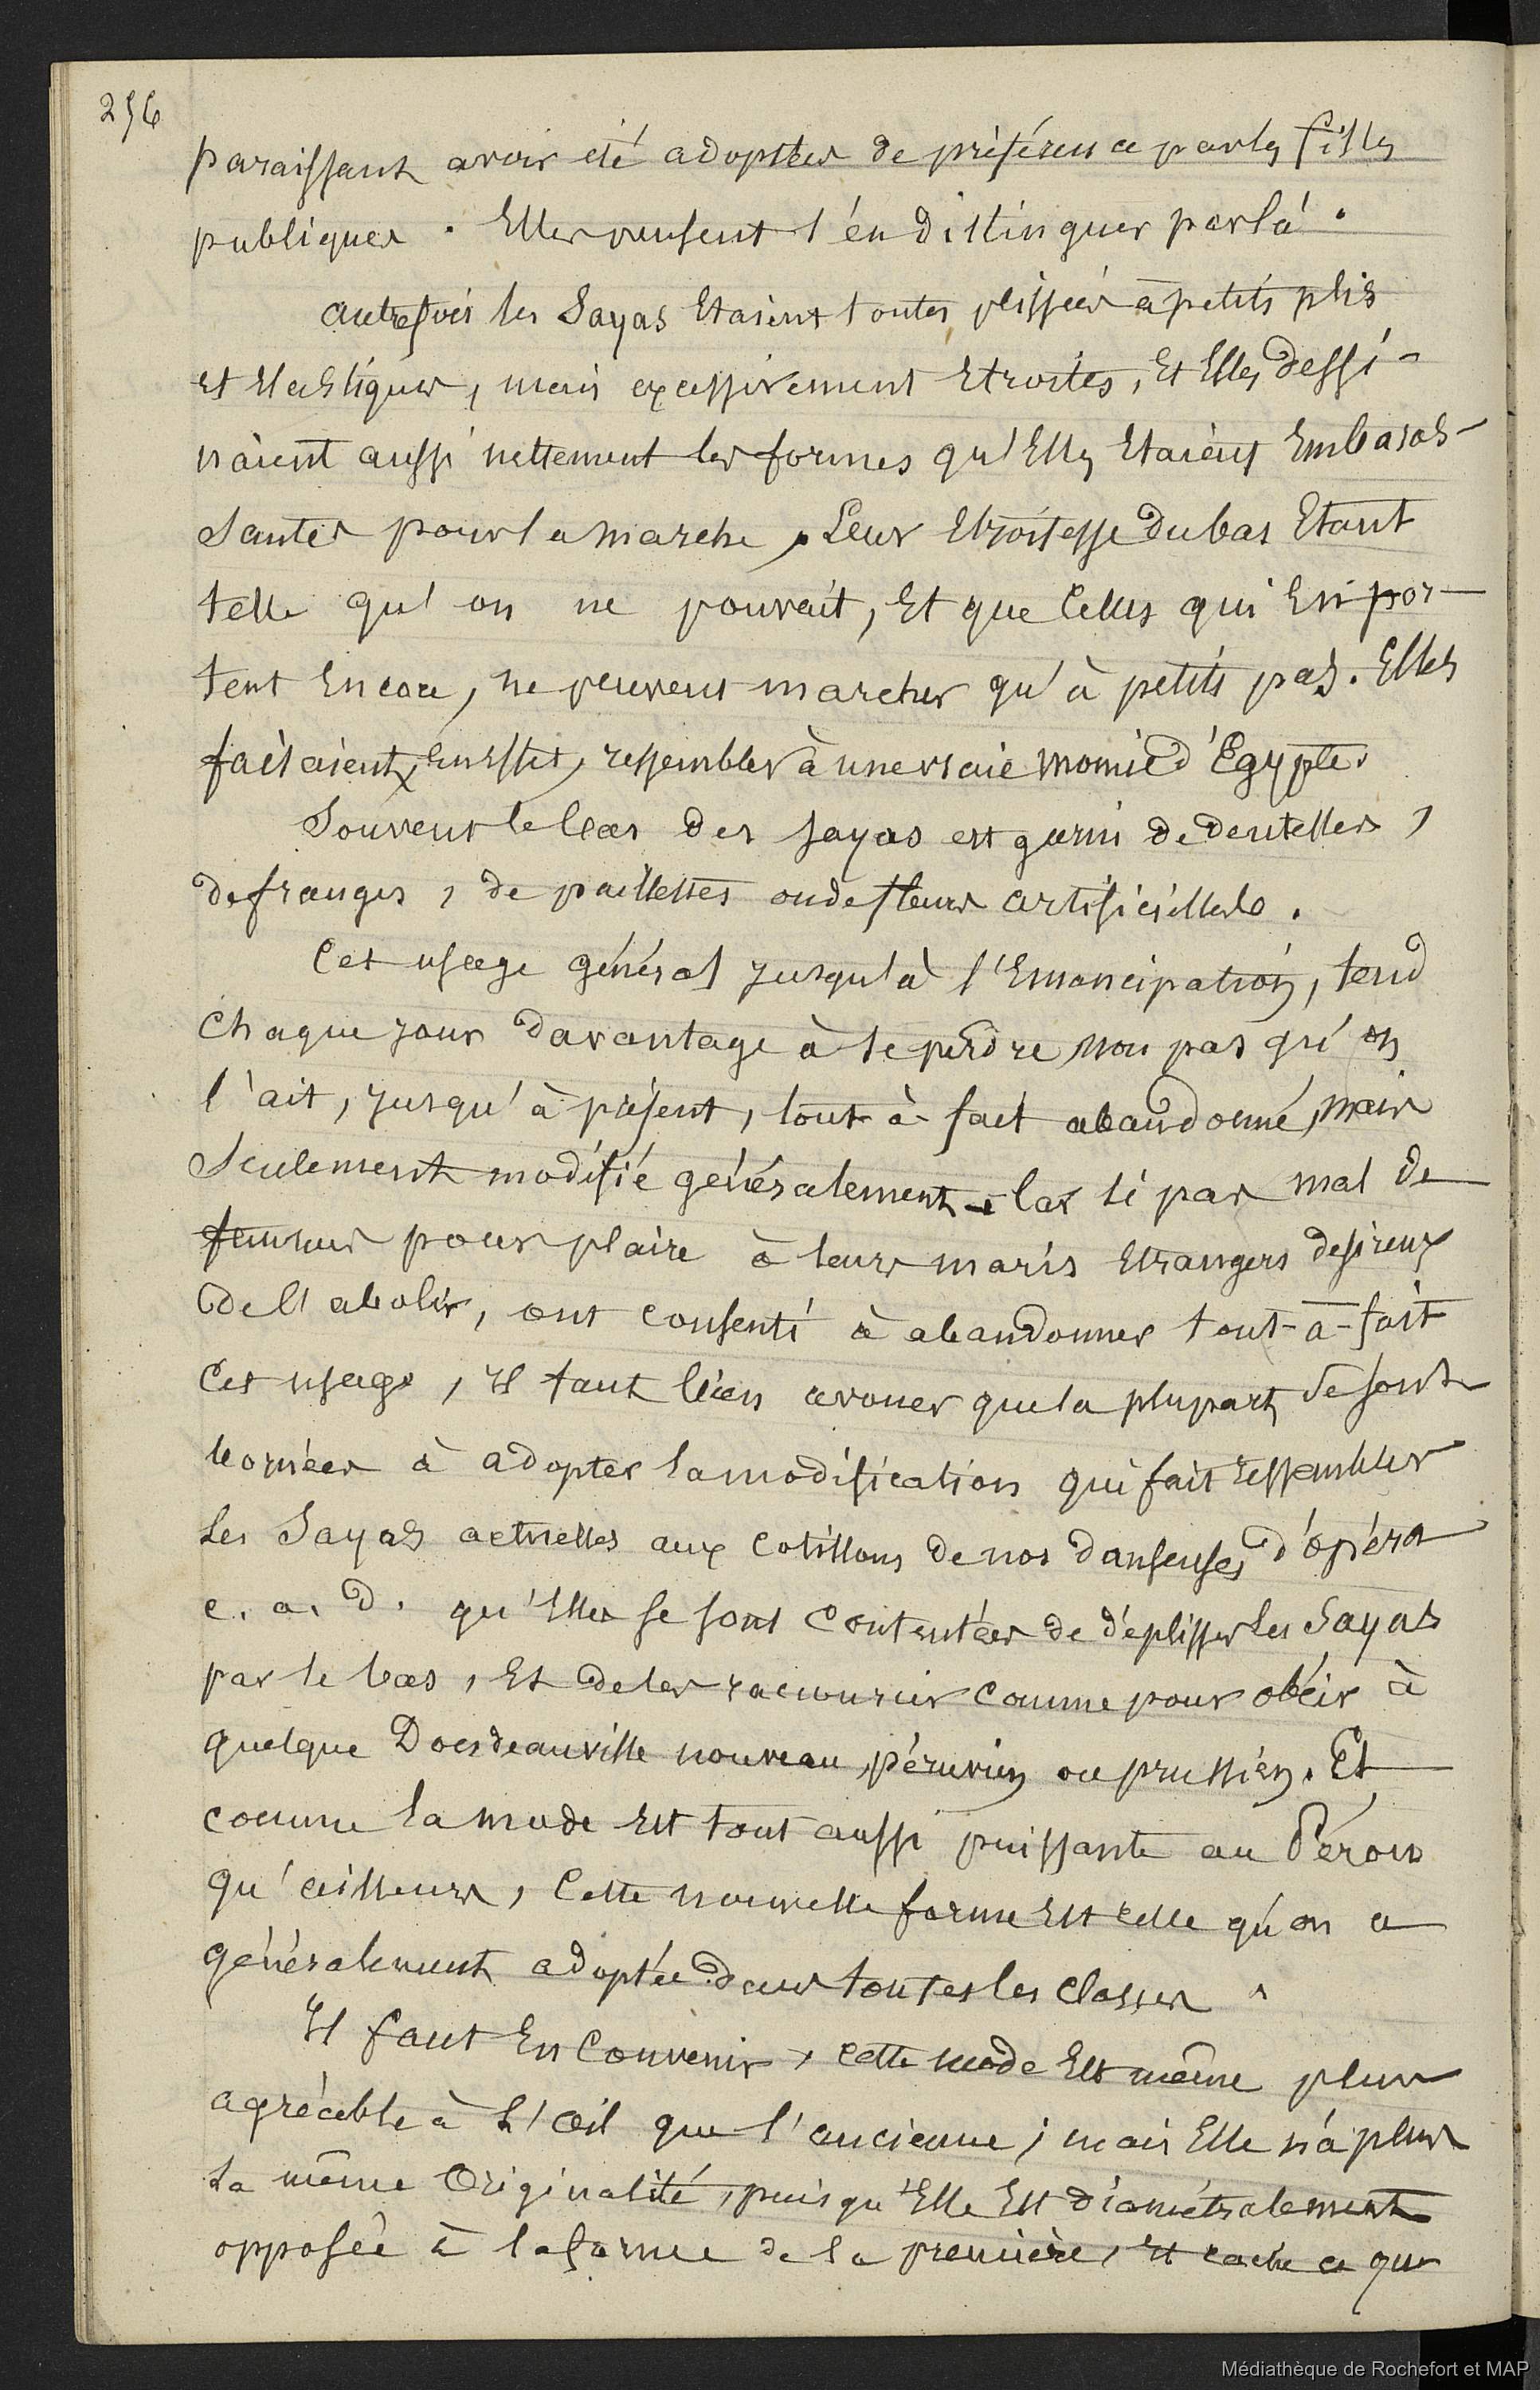 256
paraissant avoir été adoptées de préférence par les filles
publiques . Elles veulent s'en distinguer par là .
autrefois les Sayas Etaient toutes plissées à petits plis
et Elastiques, mais excessivement Etroites, Et Elles dessi-
naient aussi nettement les formes qu'Elles Etaient Embaras-
santes pour la marche, Leur Etroitesse du bas Etant
telle qu'on ne pouvait, Et que Celles qui En por-
tent Encore, ne peuvent marcher qu'à petits pas. Elles
faisaient, En Effet, ressembler à une vraie momie d'Egypte.
Souvent le bas des sayas est garni de dentelles,
de franges, de paillettes ou de fleurs artificielles.
Cet usage général jusqu'à l'Emancipation, tend
Chaque jour davantage à se perdre non pas qu'on
l'ait, jusqu'à présent, tout à fait abandonné, mais
Seulement modifié généralement car si pas mal de
femmes pour plaire à leurs maris Etrangers desireux
de l'abolir, ont consenti à abandonner tout-à-fait
Cet usage, Il faut bien avouer que la plupart se sont
bornées à adopter la modification qui fait ressembler
les Sayas actuelles aux Cotillons de nos danseuses d'opéra
c. a. d. qu'Elles se sont Contentées de déplisser les Sayas
par le bas, Et de les raccourcir comme pour obéir à
quelque Doudeauville nouveau, péruvien ou prussien. Et
comme la mode Est tout aussi puissante au Pérou
qu'ailleurs, Cette nouvelle forme Est celle qu'on a
généralement adoptée dans toutes les Classes .
Il faut En Convenir, cette mode Est même plus
agréable à l'Œil que l'ancienne ; mais Elle n'a plus
la même Originalité, puisqu'Elle Est diamétralement
opposée à la forme de la première, Et cache ce que
Médiathèque de Rochefort et MAP